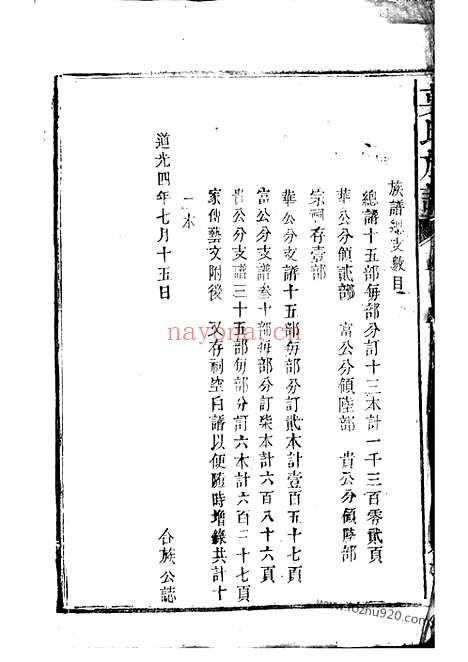 族譜總支數目
總譜十五部每部分訂十三本計一千三百零貳頁
華公分領貳部　富公分領陸部　貴公分領陸部
宗祠存壹部
華公分支譜十五部每部分訂貳本計壹百五十七頁
富公分支譜叁十部每部分訂柒本計六百八十六頁
貴公分支譜三十五部每部分訂六本計六百二十七頁
家傳藝文附後　又存祠空白譜以便隨時增錄共計十
二本
道光四年七月十五日
合族公誌
nayona.cn
www.fozhu920.com